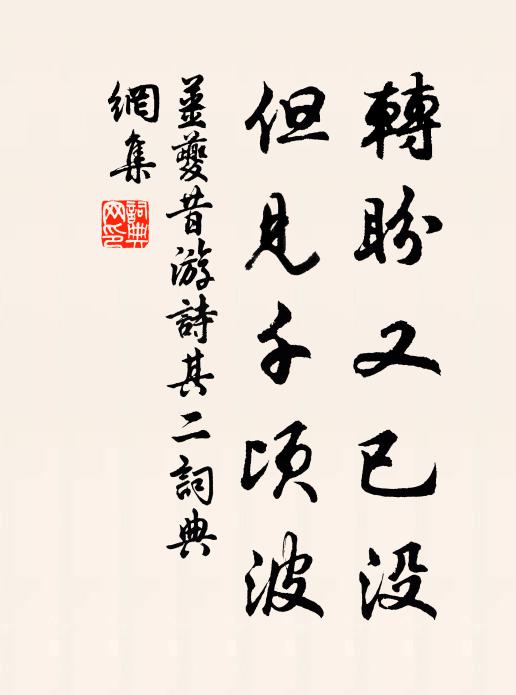 轉盼又已没
但見千頃波
姜夔昔游詩其二詞典
網集
詞典
网印